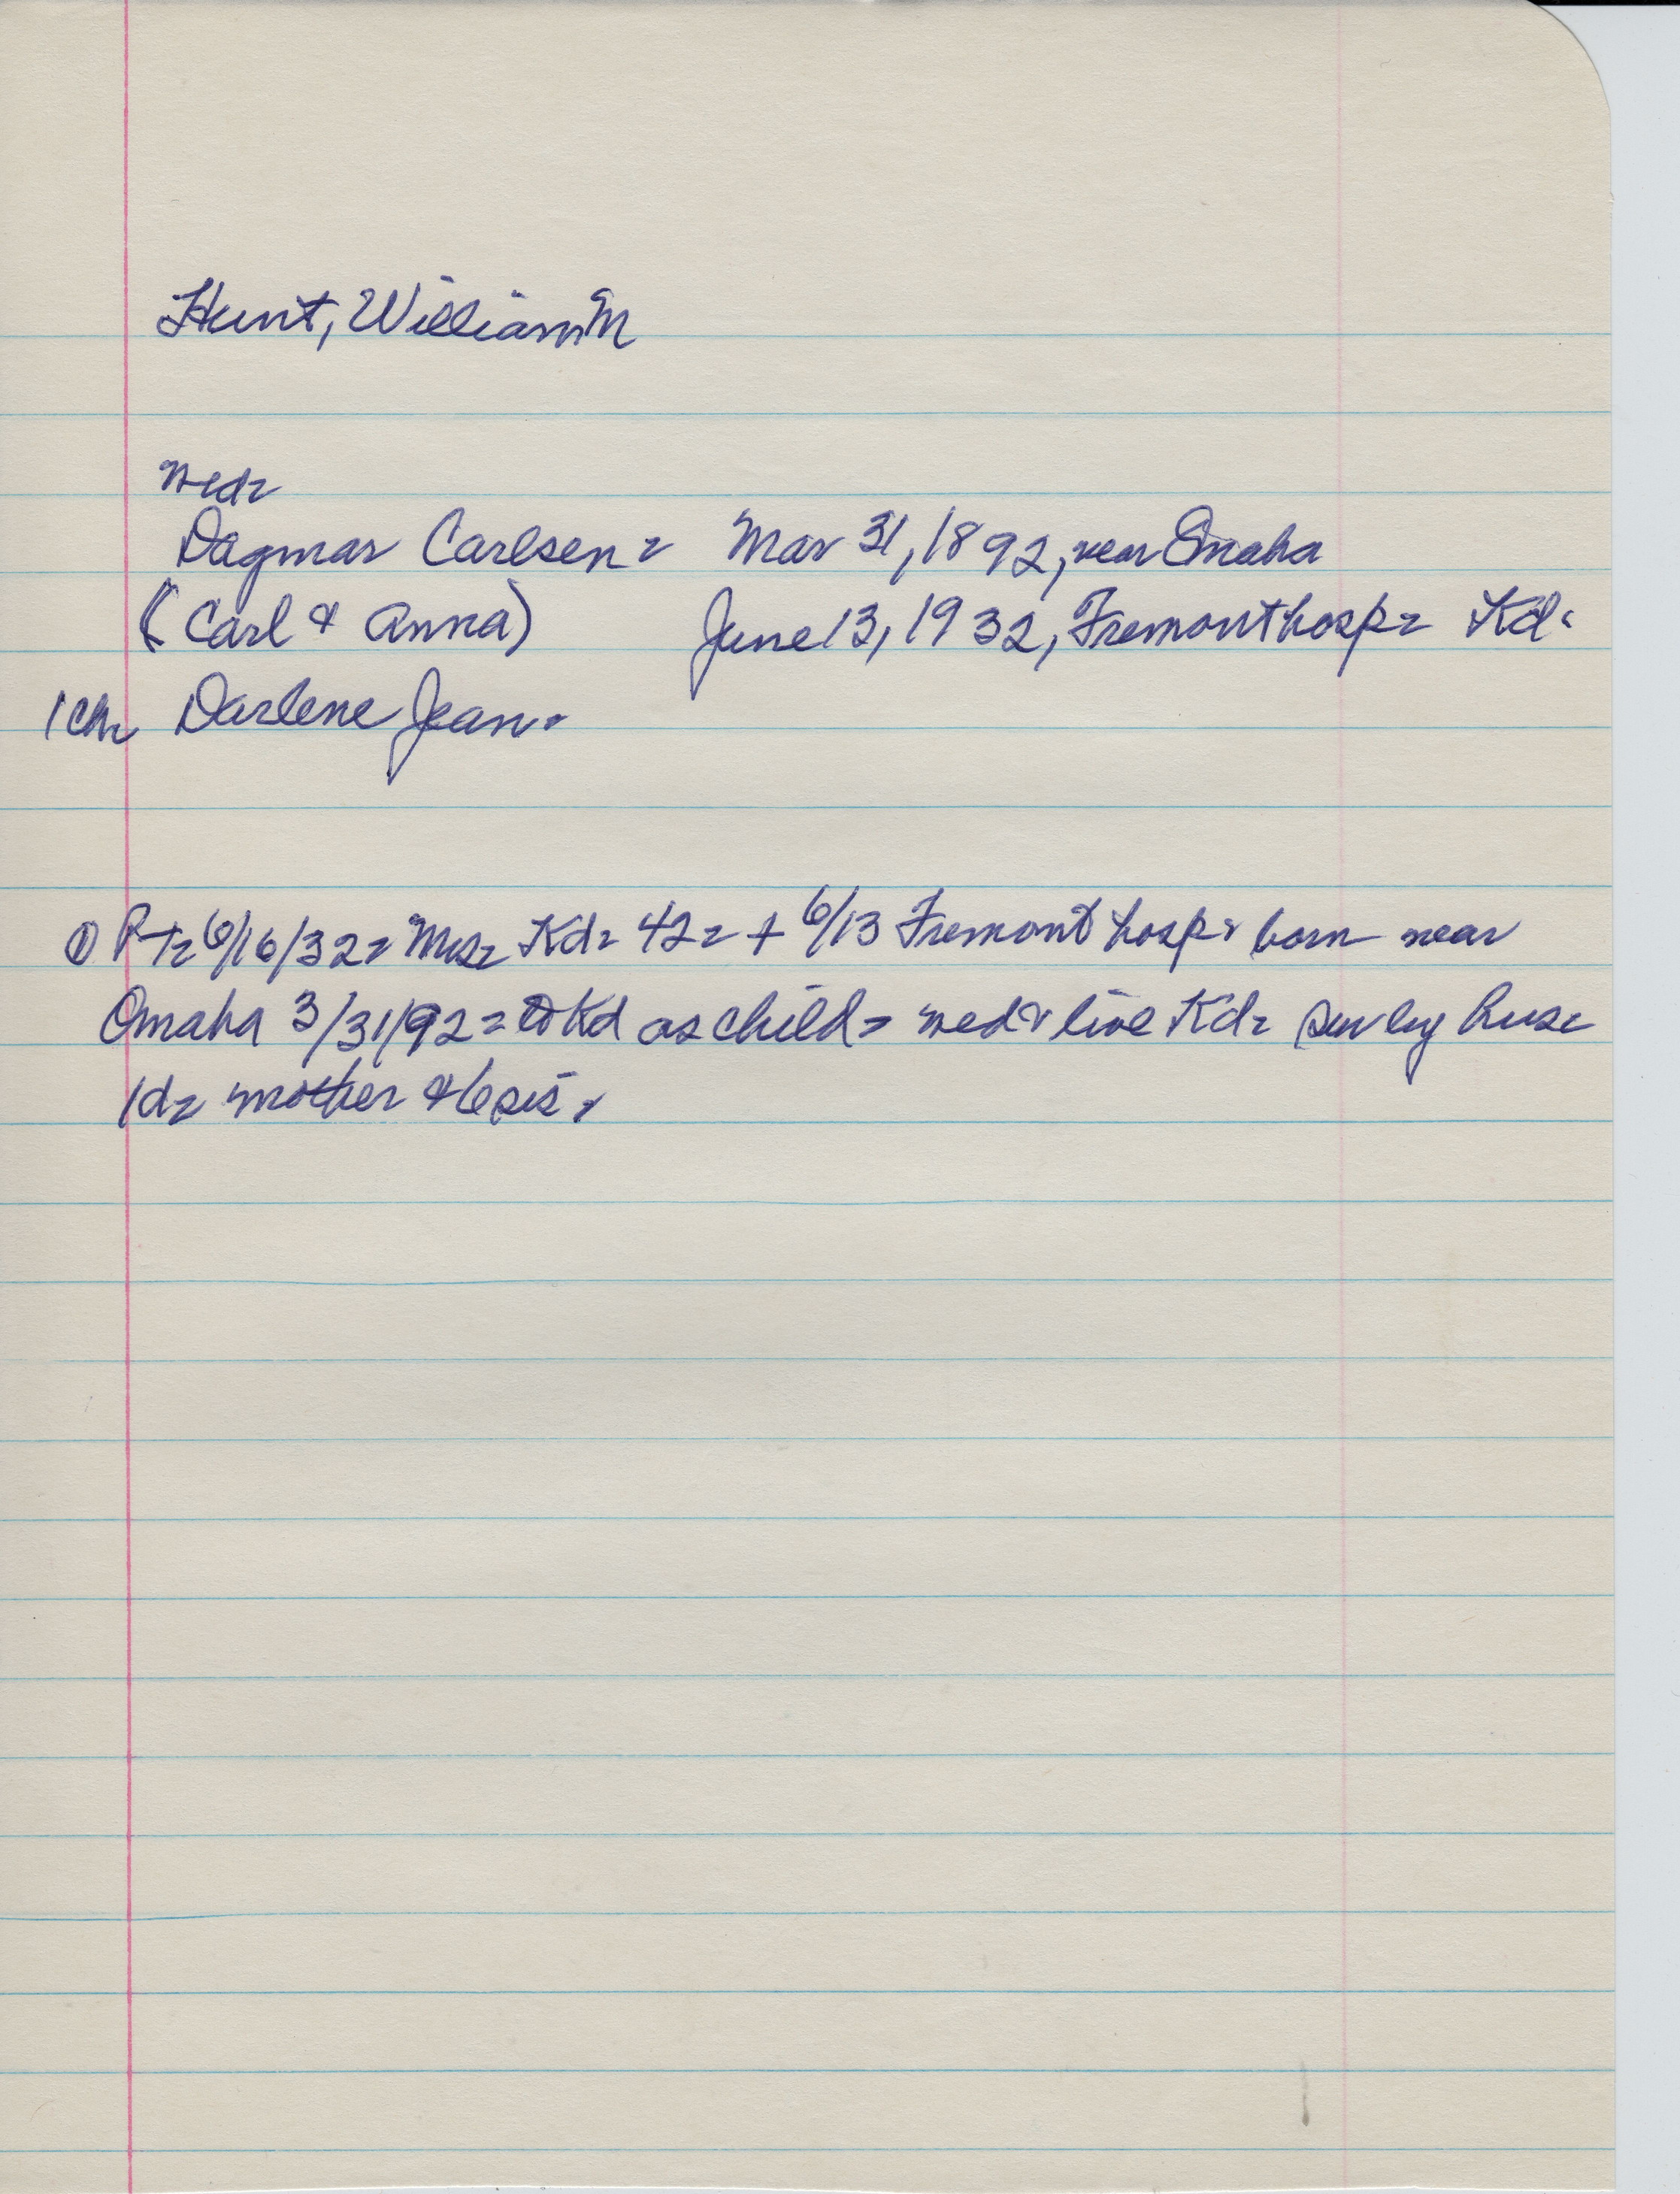 Hunt, William M
wed=
Dagmar Carlsen= Mar 31, 1892, near Omaha
(Carl & Anna) June 13, 1932, Fremont hosp= Kd=
1 ch= Darlene Jean.
① PT= 6/16/32= Mrs= Kd= 42= + 6/13 Fremont hosp= born near
Omaha 3/31/92= to Kd as child= wed & live Kd= surv by hus=
1d= mother & 6 sis.